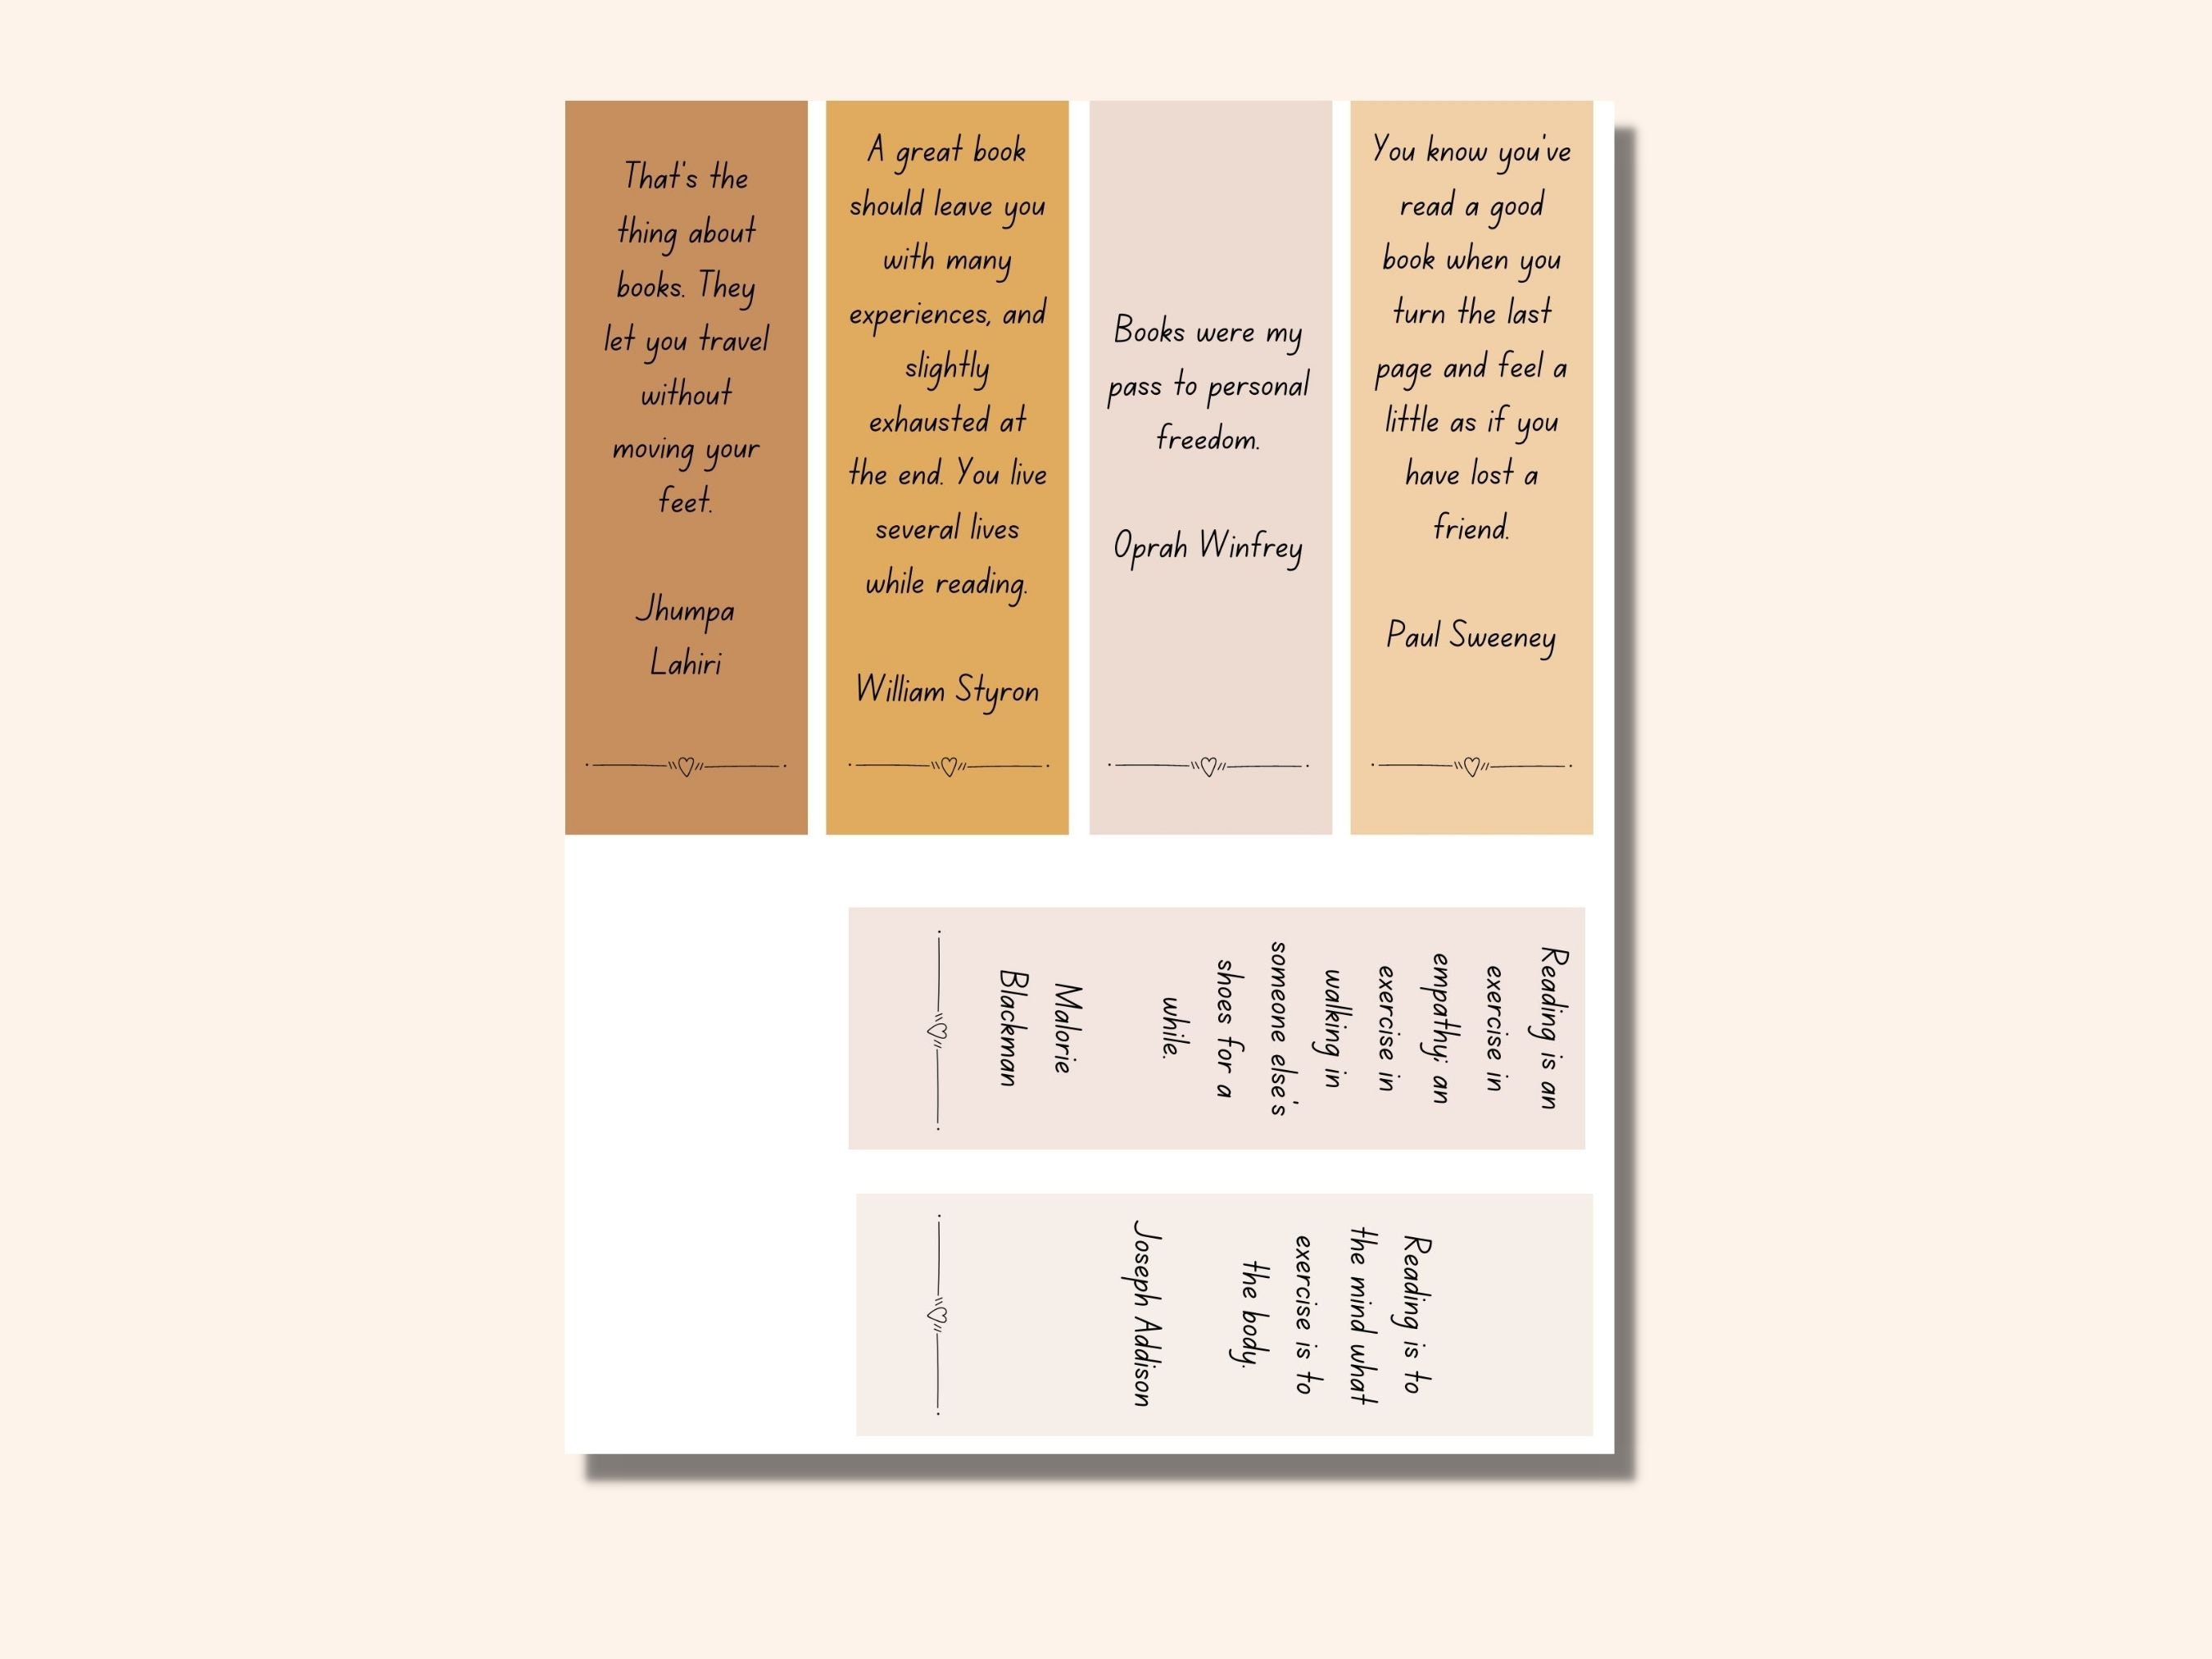 That's the
thing about
books. They
let you travel
without
moving your
feet.
Jhumpa
Lahiri
A great book
should leave you
with many
experiences, and
slightly
exhausted at
the end. You live
several lives
while reading.
William Styron
Books were my
pass to personal
freedom.
Oprah Winfrey
You know you've
read a good
book when you
turn the last
page and feel a
little as if you
have lost a
friend.
Paul Sweeney
Reading is an
exercise in
empathy; an
exercise in
walking in
someone else's
shoes for a
while.
Malorie
Blackman
Reading is to
the mind what
exercise is to
the body.
Joseph Addison